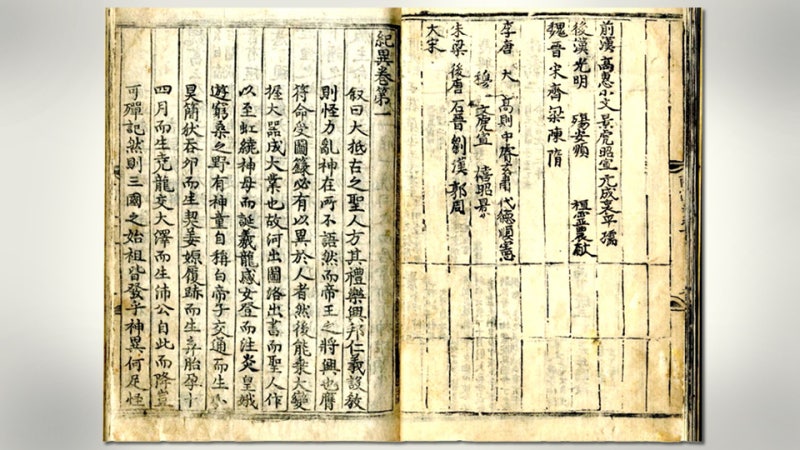 前漢 高惠小文景虎昭宣元成哀平孺
後漢光明 殤安順 桓靈農献
魏晉宋齊梁陳隋
李唐 大 高則中睿玄肅代德順憲
穆 文虎宣 僖昭景
朱梁 後唐 石晉 劉漢 郭周
大宋
紀異卷第一
叙曰大抵古之聖人方其禮樂興邦仁義設敎
則怪力亂神在所不語然而帝王之將興也膺
符命受圖籙必有以異於人者然後能乘大變
握大器成大業也故河出圖洛出書而聖人作
以至虹繞神母而誕羲龍感女登而注炎皇娥
遊窮桑之野有神童自稱白帝子交通而生小
昊簡狄呑卵而生契姜嫄履跡而生弃胎孕十
四月而生堯龍交大澤而生沛公自此而降豈
可殫記然則三國之始祖皆發乎神異何足怪